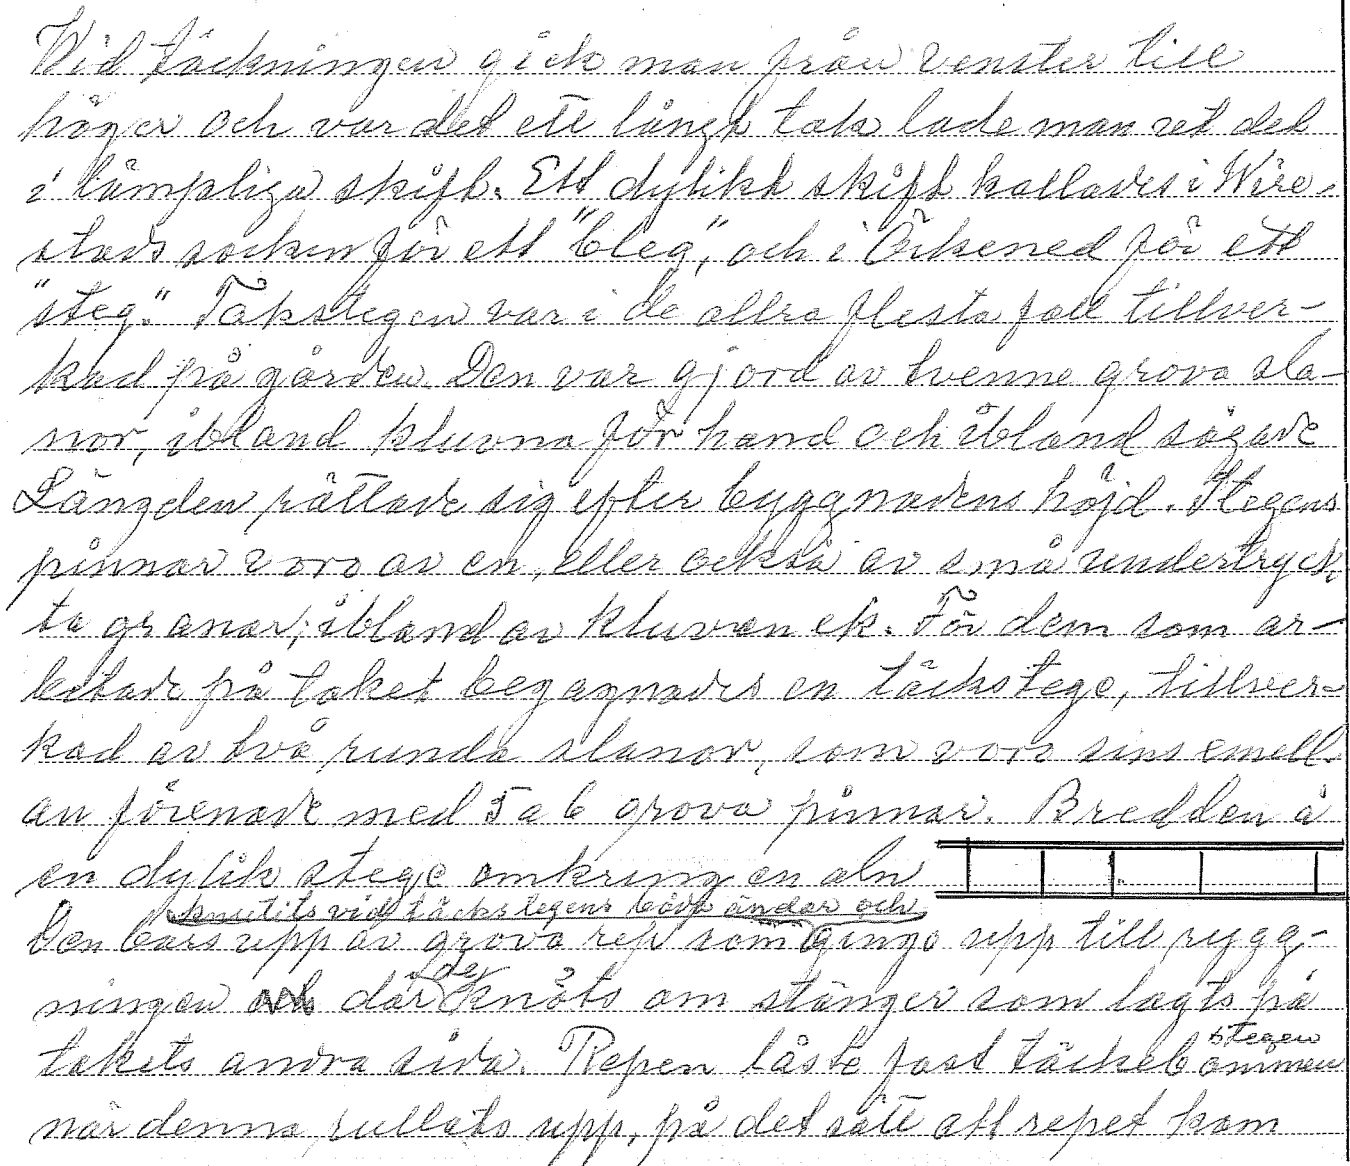 Wid täckningen gick man från venster till
höger och var det ett långt tak lade man ut det
i lämpliga skift. Ett dylikt skift kallades i Wire-
stads socken för ett "bleg", och i Örkened för ett
"steg." Takstegen var i de allra flesta fall tillver-
kad på gården. Den var gjord av tvenne grova sla-
nor, ibland kluvna för hand och ibland sågade
Längden rättade sig efter byggnadens höjd. Stegens
pinnar voro av en, eller också av små undertryck
ta granar, ibland av kluven ek. För dem som ar-
betade på taket begagnades en täckstege, tillver-
kad av två runda slanor, som voro sinsemell-
an förenade med 5 a 6 grova pinnar. Bredden å
en dylik stege omkring en aln
knutits vid täckstegens båda ändar och
Den bars upp av grova rep som gingo upp till rygg-
ningen och där de knöts om stänger som lagts på
takets andra sida. Repen låste fast täckebommen
stegen
när denna rullats upp, på det sätt att repet kom